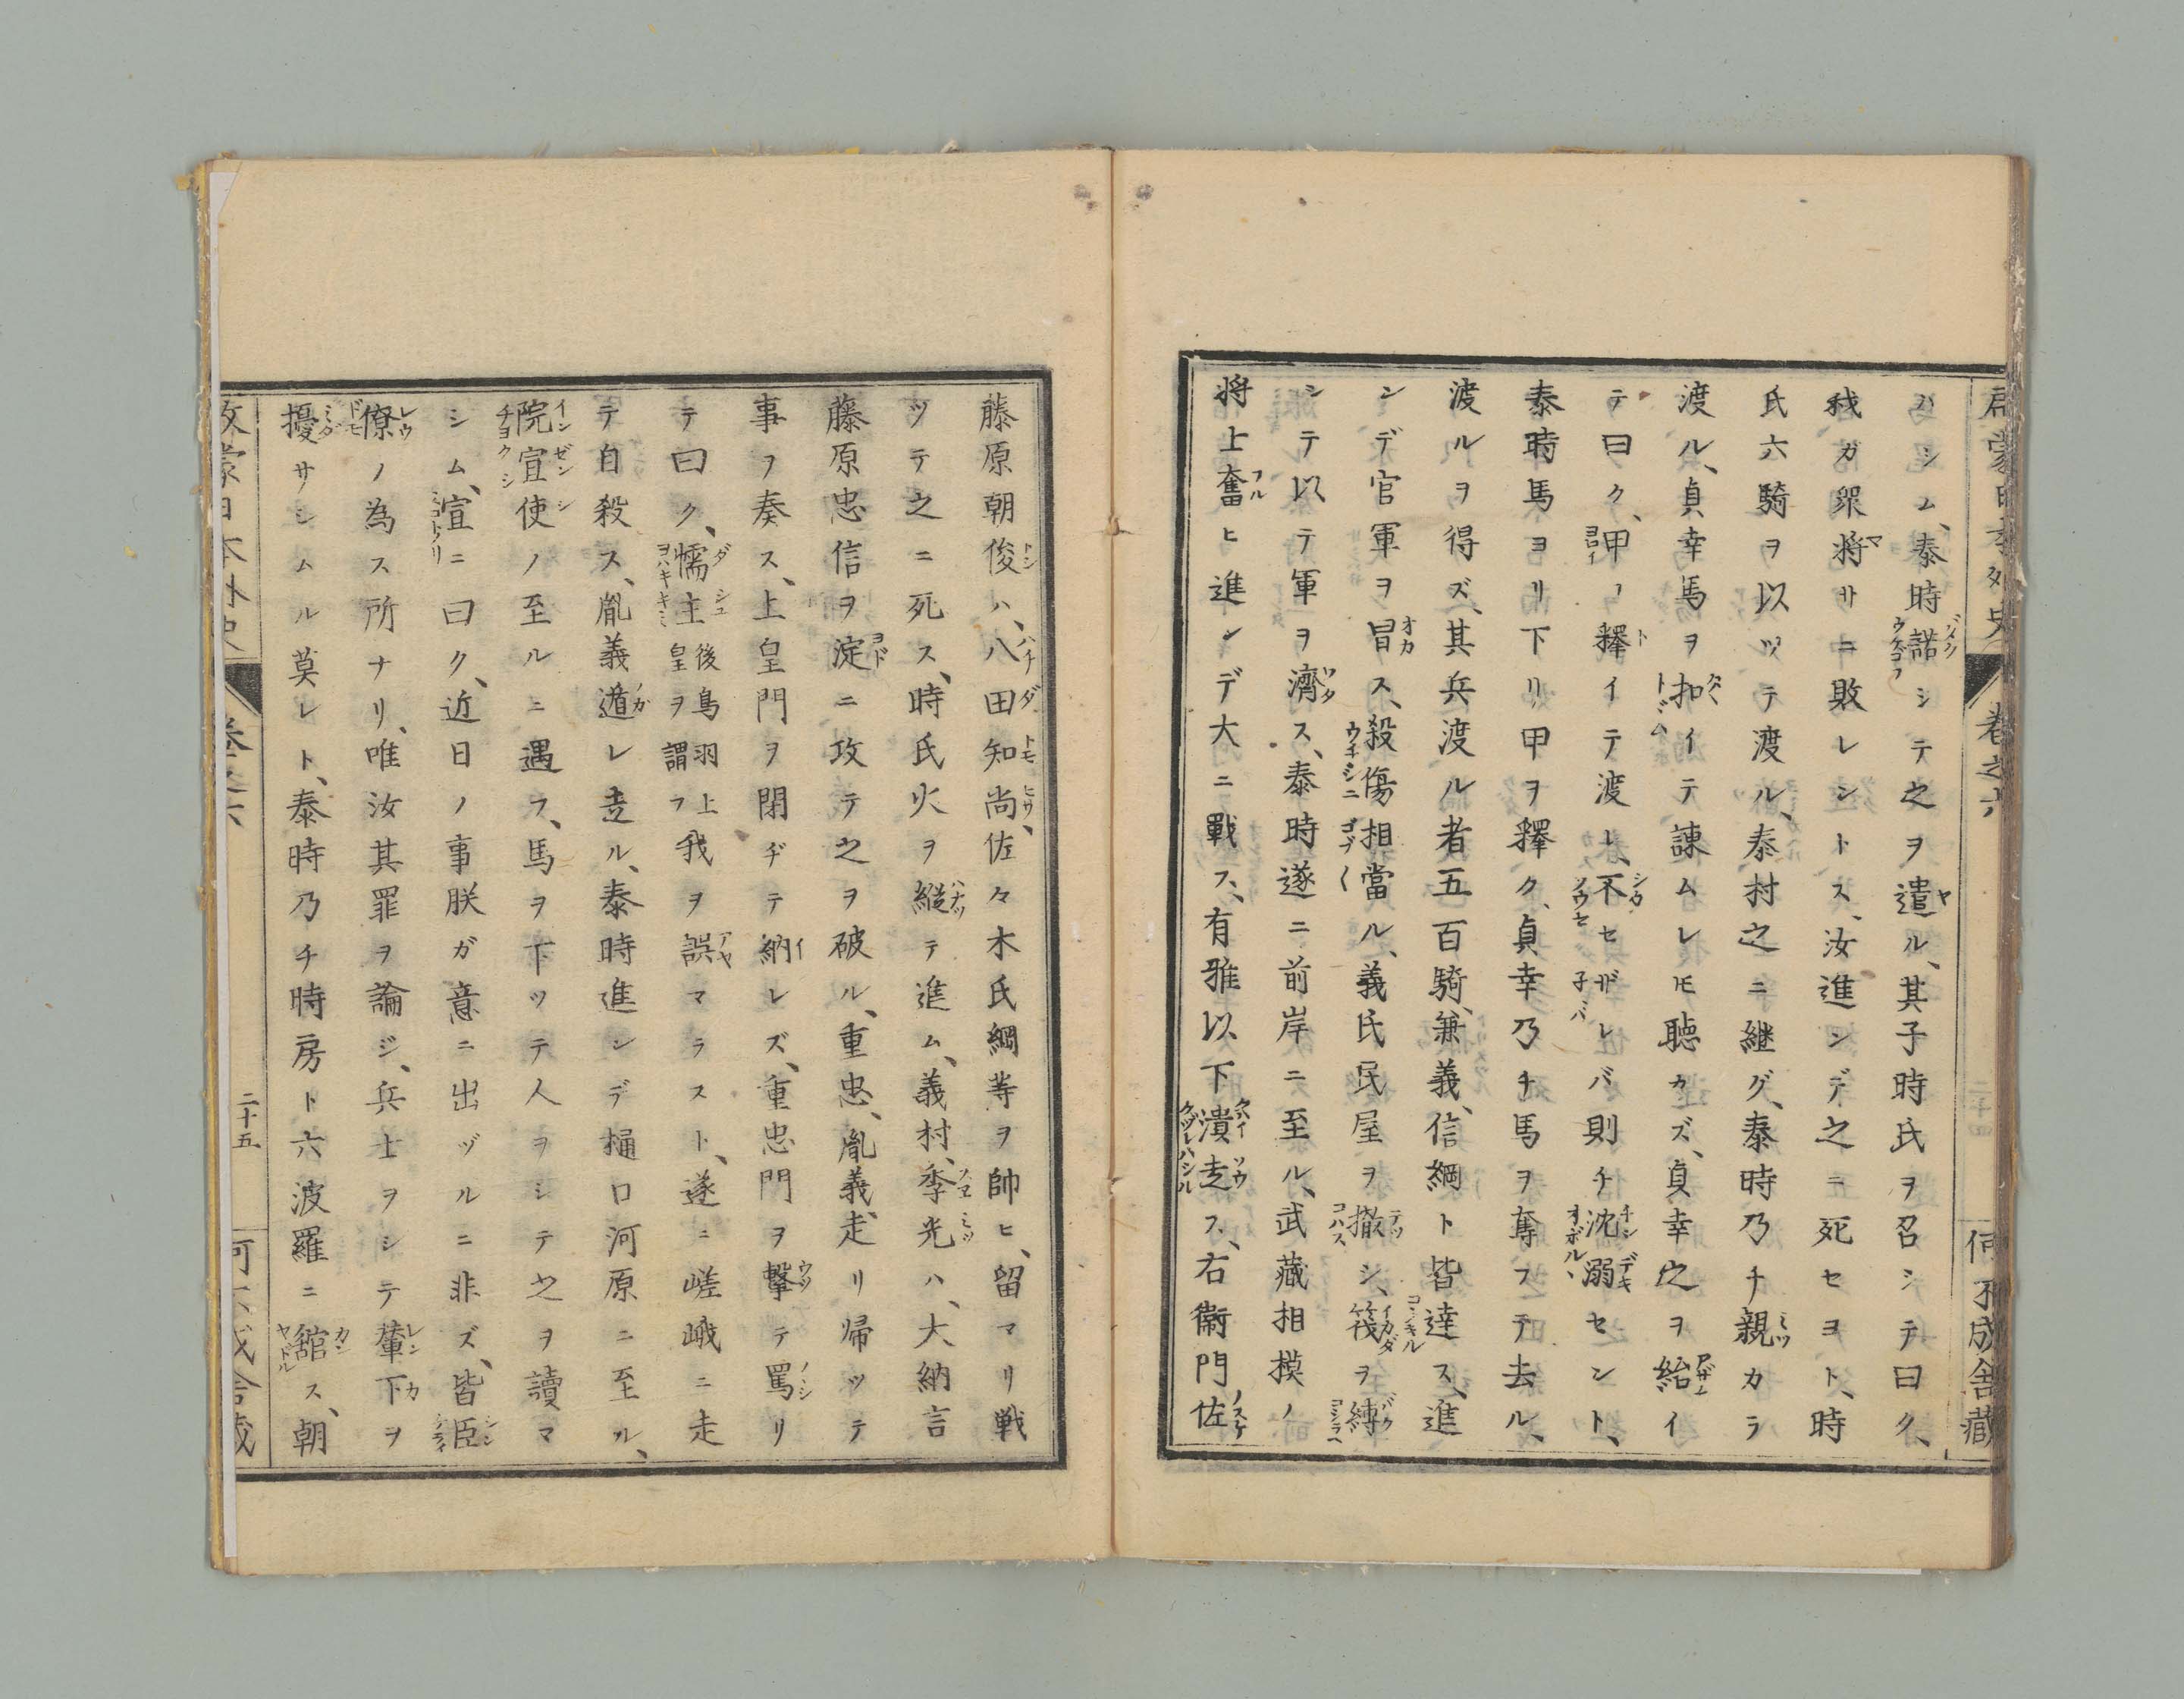 啓蒙日本外史 巻之六 何不成舎蔵
バシム、泰時諾シテ之ヲ遣ル、其子時氏ヲ召シテ曰ク、
我ガ衆将サニ敗レントス、汝進ンデ之ニ死セヨト、時
氏六騎ヲ以ツテ渡ル、泰村之ニ継グ、泰時乃チ親カラ
渡ル、貞幸馬ヲ扣イテ諌ムレ𪜈聴カズ、貞幸之ヲ紿イ
テ曰ク、甲ヲ釋イテ渡レ、不セザレバ則チ沈溺セント、
泰時馬ヨリ下リ甲ヲ釋ク、貞幸乃チ馬ヲ奪フテ去ル、
渡ルヲ得ズ、其兵渡ル者五百騎、兼義、信綱ト皆達ス、進
ンデ官軍ヲ冒ス、殺傷相當ル、義氏民屋ヲ撤シ、筏ヲ縛
シテ以テ軍ヲ濟ス、泰時遂ニ前岸ニ至ル、武藏相摸ノ
将士奮ヒ進ンデ大ニ戰フ、有雅以下潰走ス、右衞門佐
藤原朝俊ハ、八田知尚、佐々木氏綱等ヲ帥ヒ、留マリ戦
ツテ之ニ死ス、時氏火ヲ縦テ進ム、義村、季光ハ、大納言
藤原忠信ヲ淀ニ攻テ之ヲ破ル、重忠、胤義、走リ帰ツテ
事ヲ奏ス、上皇門ヲ閉ヂテ納レズ、重忠門ヲ撃テ罵リ
テ曰ク、懦主後鳥羽上皇ヲ謂フ我ヲ誤マラスト、遂ニ嵯峨ニ走
テ自殺ス、胤義遁レ走ル、泰時進ンデ樋口河原ニ至ル、
院宣使ノ至ルニ遇フ、馬ヲ下ツテ人ヲシテ之ヲ讀マ
シム、宣ニ曰ク、近日ノ事朕ガ意ニ出ヅルニ非ズ、皆臣
僚ノ為ス所ナリ、唯汝其罪ヲ論ジ、兵士ヲシテ輦下ヲ
擾サシムル莫レト、泰時乃チ時房ト六波羅ニ舘ス、朝
啓蒙日本外史 巻之六 二十五 何不成舎蔵